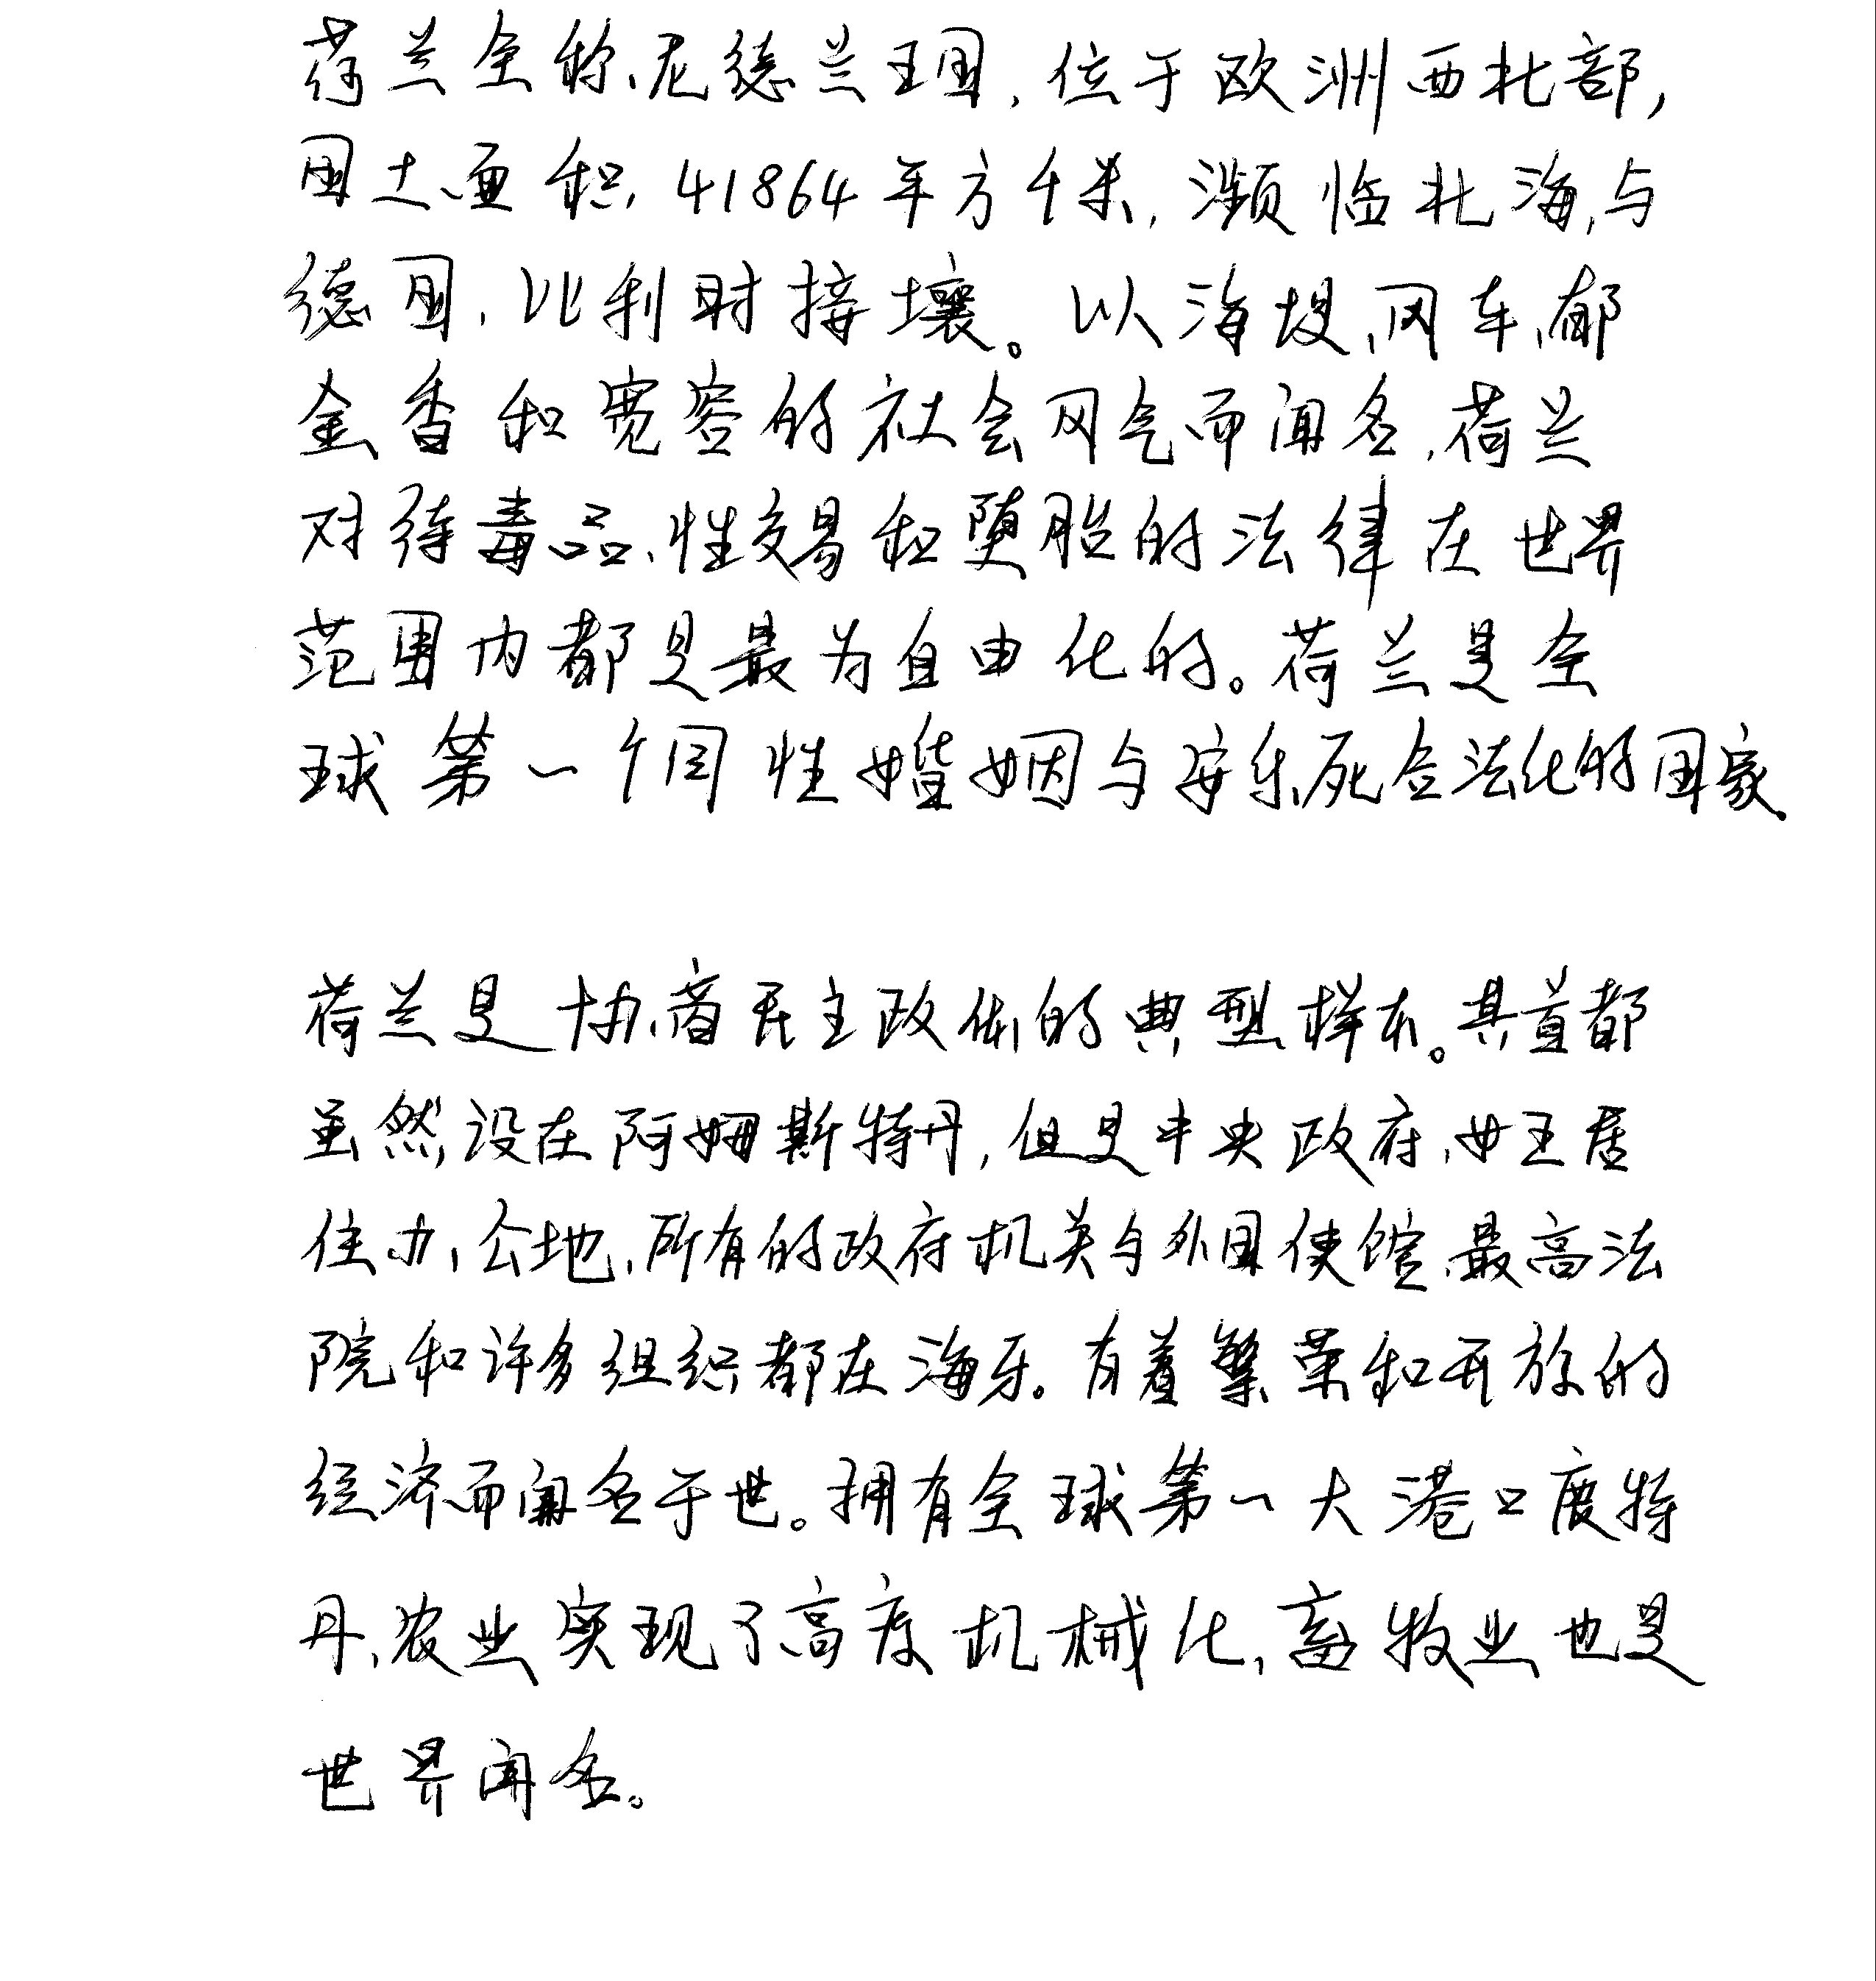 荷兰全称尼德兰王国，位于欧洲西北部，
国土面积41864平方千米，濒临北海，与
德国、比利时接壤。以海堤、风车、郁
金香和宽容的社会风气而闻名，荷兰
对待毒品、性交易和堕胎的法律在世界
范围内都是最为自由化的。荷兰是全
球第一个同性婚姻与安乐死合法化的国家
荷兰是协商民主政体的典型样本。其首都
虽然设在阿姆斯特丹，但是中央政府、女王居
住办公地、所有的政府机关与外国使馆、最高法
院和许多组织都在海牙。有着繁荣和开放的
经济而闻名于世。拥有全球第一大港口鹿特
丹、农业实现了高度机械化，畜牧业也是
世界闻名。